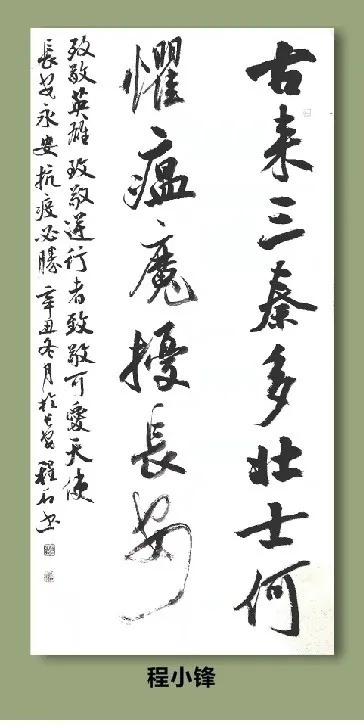 古来三秦多壮士何
懼瘟魔擾長安
致敬英雄致敬逆行者致敬可愛天使
長安永安抗疫必勝辛丑冬月於長安程石书
程小锋